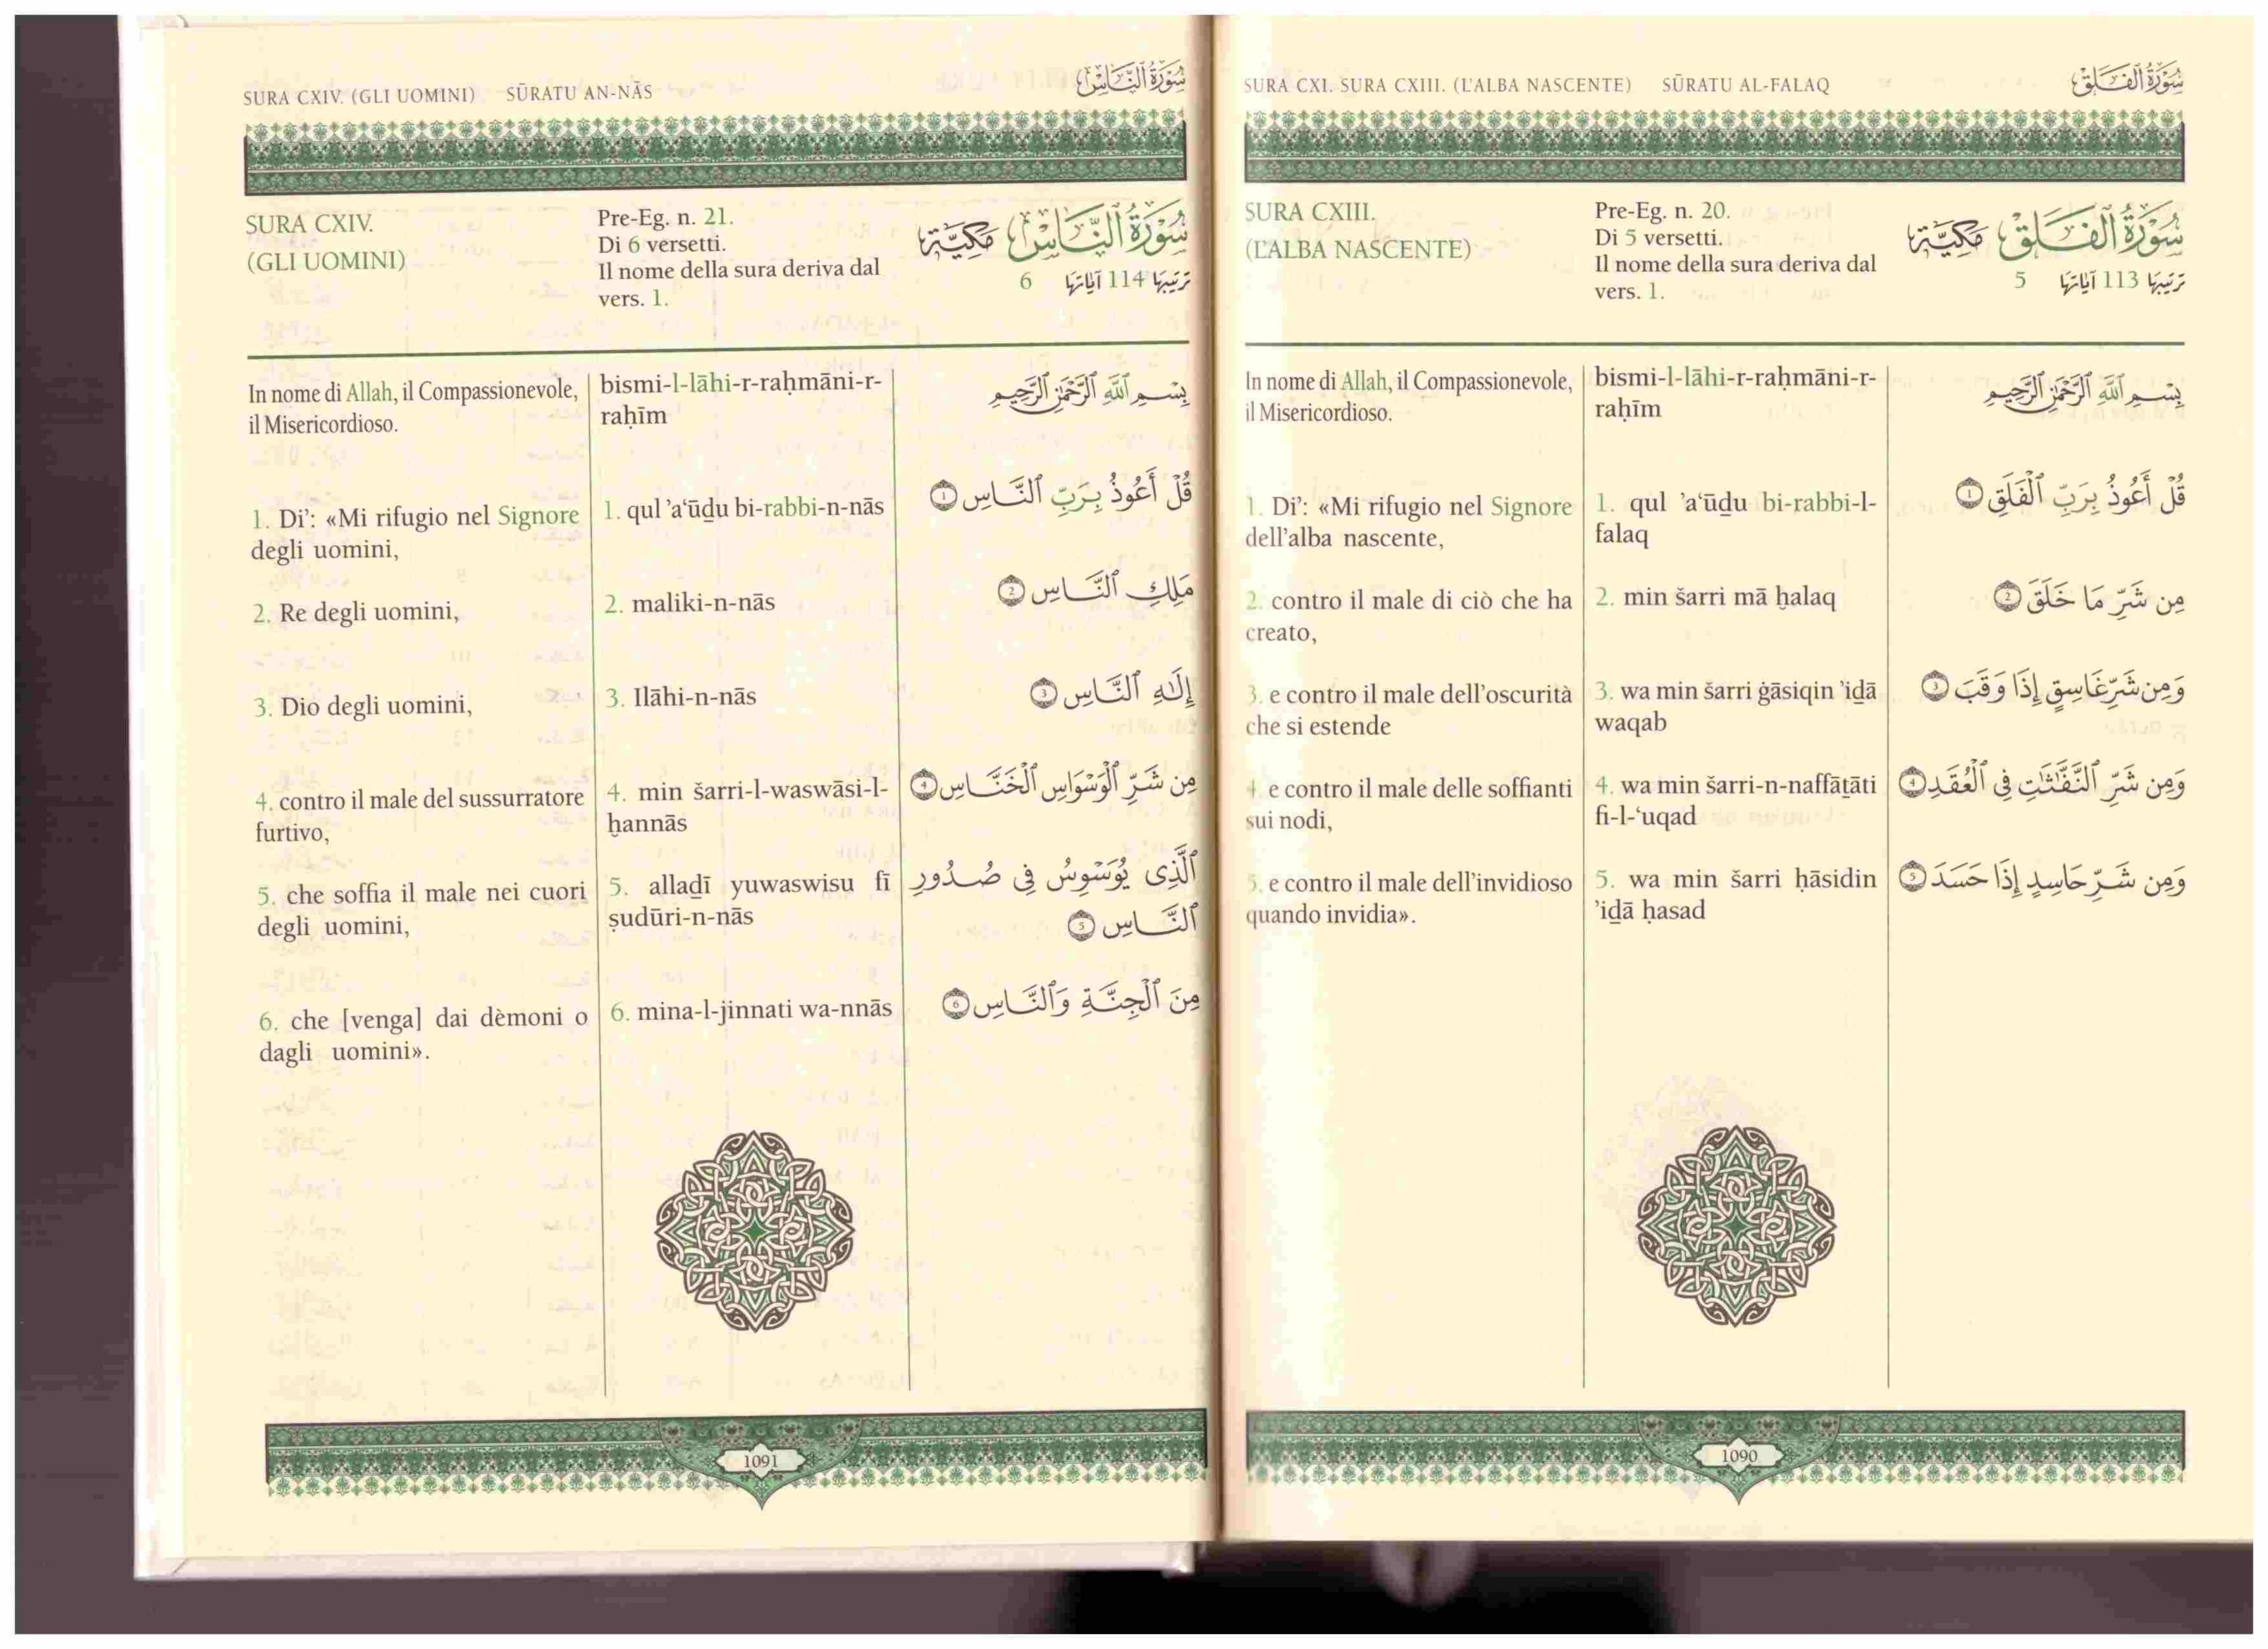 SURA CXIV. (GLI UOMINI) SŪRATU AN-NĀS سُورَةُ ٱلنَّاسِ
SURA CXIV.
(GLI UOMINI)
Pre-Eg. n. 21.
Di 6 versetti.
Il nome della sura deriva dal
vers. 1.
سُورَةُ ٱلنَّاسِ مَكِيَّة
تَرتيبها 114 آياتها 6
In nome di Allah, il Compassionevole,
il Misericordioso.
bismi-l-lāhi-r-raḥmāni-r-
raḥīm
بِسْمِ ٱللَّهِ ٱلرَّحْمَٰنِ ٱلرَّحِيمِ
1. Di’: «Mi rifugio nel Signore
degli uomini,
1. qul ’a‘ūḏu bi-rabbi-n-nās
قُلْ أَعُوذُ بِرَبِّ ٱلنَّاسِ 1
2. Re degli uomini,
2. maliki-n-nās
مَلِكِ ٱلنَّاسِ 2
3. Dio degli uomini,
3. Ilāhi-n-nās
إِلَٰهِ ٱلنَّاسِ 3
4. contro il male del sussurratore
furtivo,
4. min šarri-l-waswāsi-l-
ḫannās
مِن شَرِّ ٱلْوَسْوَاسِ ٱلْخَنَّاسِ 4
5. che soffia il male nei cuori
degli uomini,
5. allaḏī yuwaswisu fī
ṣudūri-n-nās
ٱلَّذِى يُوَسْوِسُ فِى صُدُورِ
ٱلنَّاسِ 5
6. che [venga] dai dèmoni o
dagli uomini».
6. mina-l-jinnati wa-nnās
مِنَ ٱلْجِنَّةِ وَٱلنَّاسِ 6
1091
SURA CXI. SURA CXIII. (L’ALBA NASCENTE) SŪRATU AL-FALAQ سُورَةُ ٱلْفَلَقِ
SURA CXIII.
(L’ALBA NASCENTE)
Pre-Eg. n. 20.
Di 5 versetti.
Il nome della sura deriva dal
vers. 1.
سُورَةُ ٱلْفَلَقِ مَكِيَّة
تَرتيبها 113 آياتها 5
In nome di Allah, il Compassionevole,
il Misericordioso.
bismi-l-lāhi-r-raḥmāni-r-
raḥīm
بِسْمِ ٱللَّهِ ٱلرَّحْمَٰنِ ٱلرَّحِيمِ
1. Di’: «Mi rifugio nel Signore
dell’alba nascente,
1. qul ’a‘ūḏu bi-rabbi-l-
falaq
قُلْ أَعُوذُ بِرَبِّ ٱلْفَلَقِ 1
2. contro il male di ciò che ha
creato,
2. min šarri mā ḫalaq
مِن شَرِّ مَا خَلَقَ 2
3. e contro il male dell’oscurità
che si estende
3. wa min šarri ġāsiqin ’iḏā
waqab
وَمِن شَرِّ غَاسِقٍ إِذَا وَقَبَ 3
4. e contro il male delle soffianti
sui nodi,
4. wa min šarri-n-naffāṯāti
fi-l-‘uqad
وَمِن شَرِّ ٱلنَّفَّٰثَٰتِ فِى ٱلْعُقَدِ 4
5. e contro il male dell’invidioso
quando invidia».
5. wa min šarri ḥāsidin
’iḏā ḥasad
وَمِن شَرِّ حَاسِدٍ إِذَا حَسَدَ 5
1090